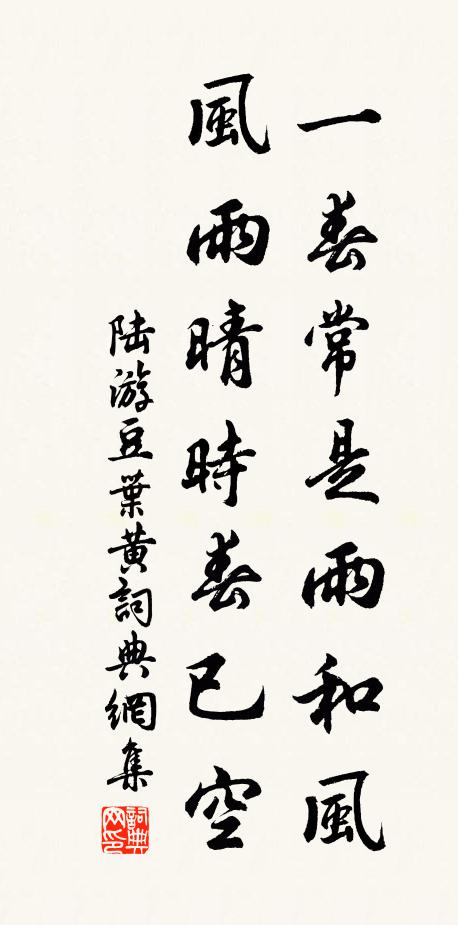 一春常是雨和風
風雨晴時春已空
陸游豆葉黃詞典網集
詞典網印